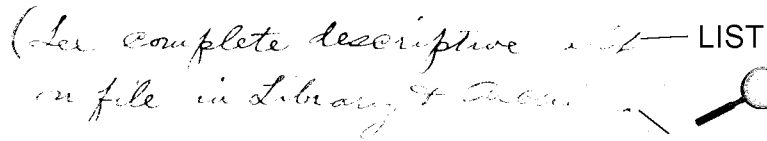 (See complete descriptive list LIST
on file in Library &